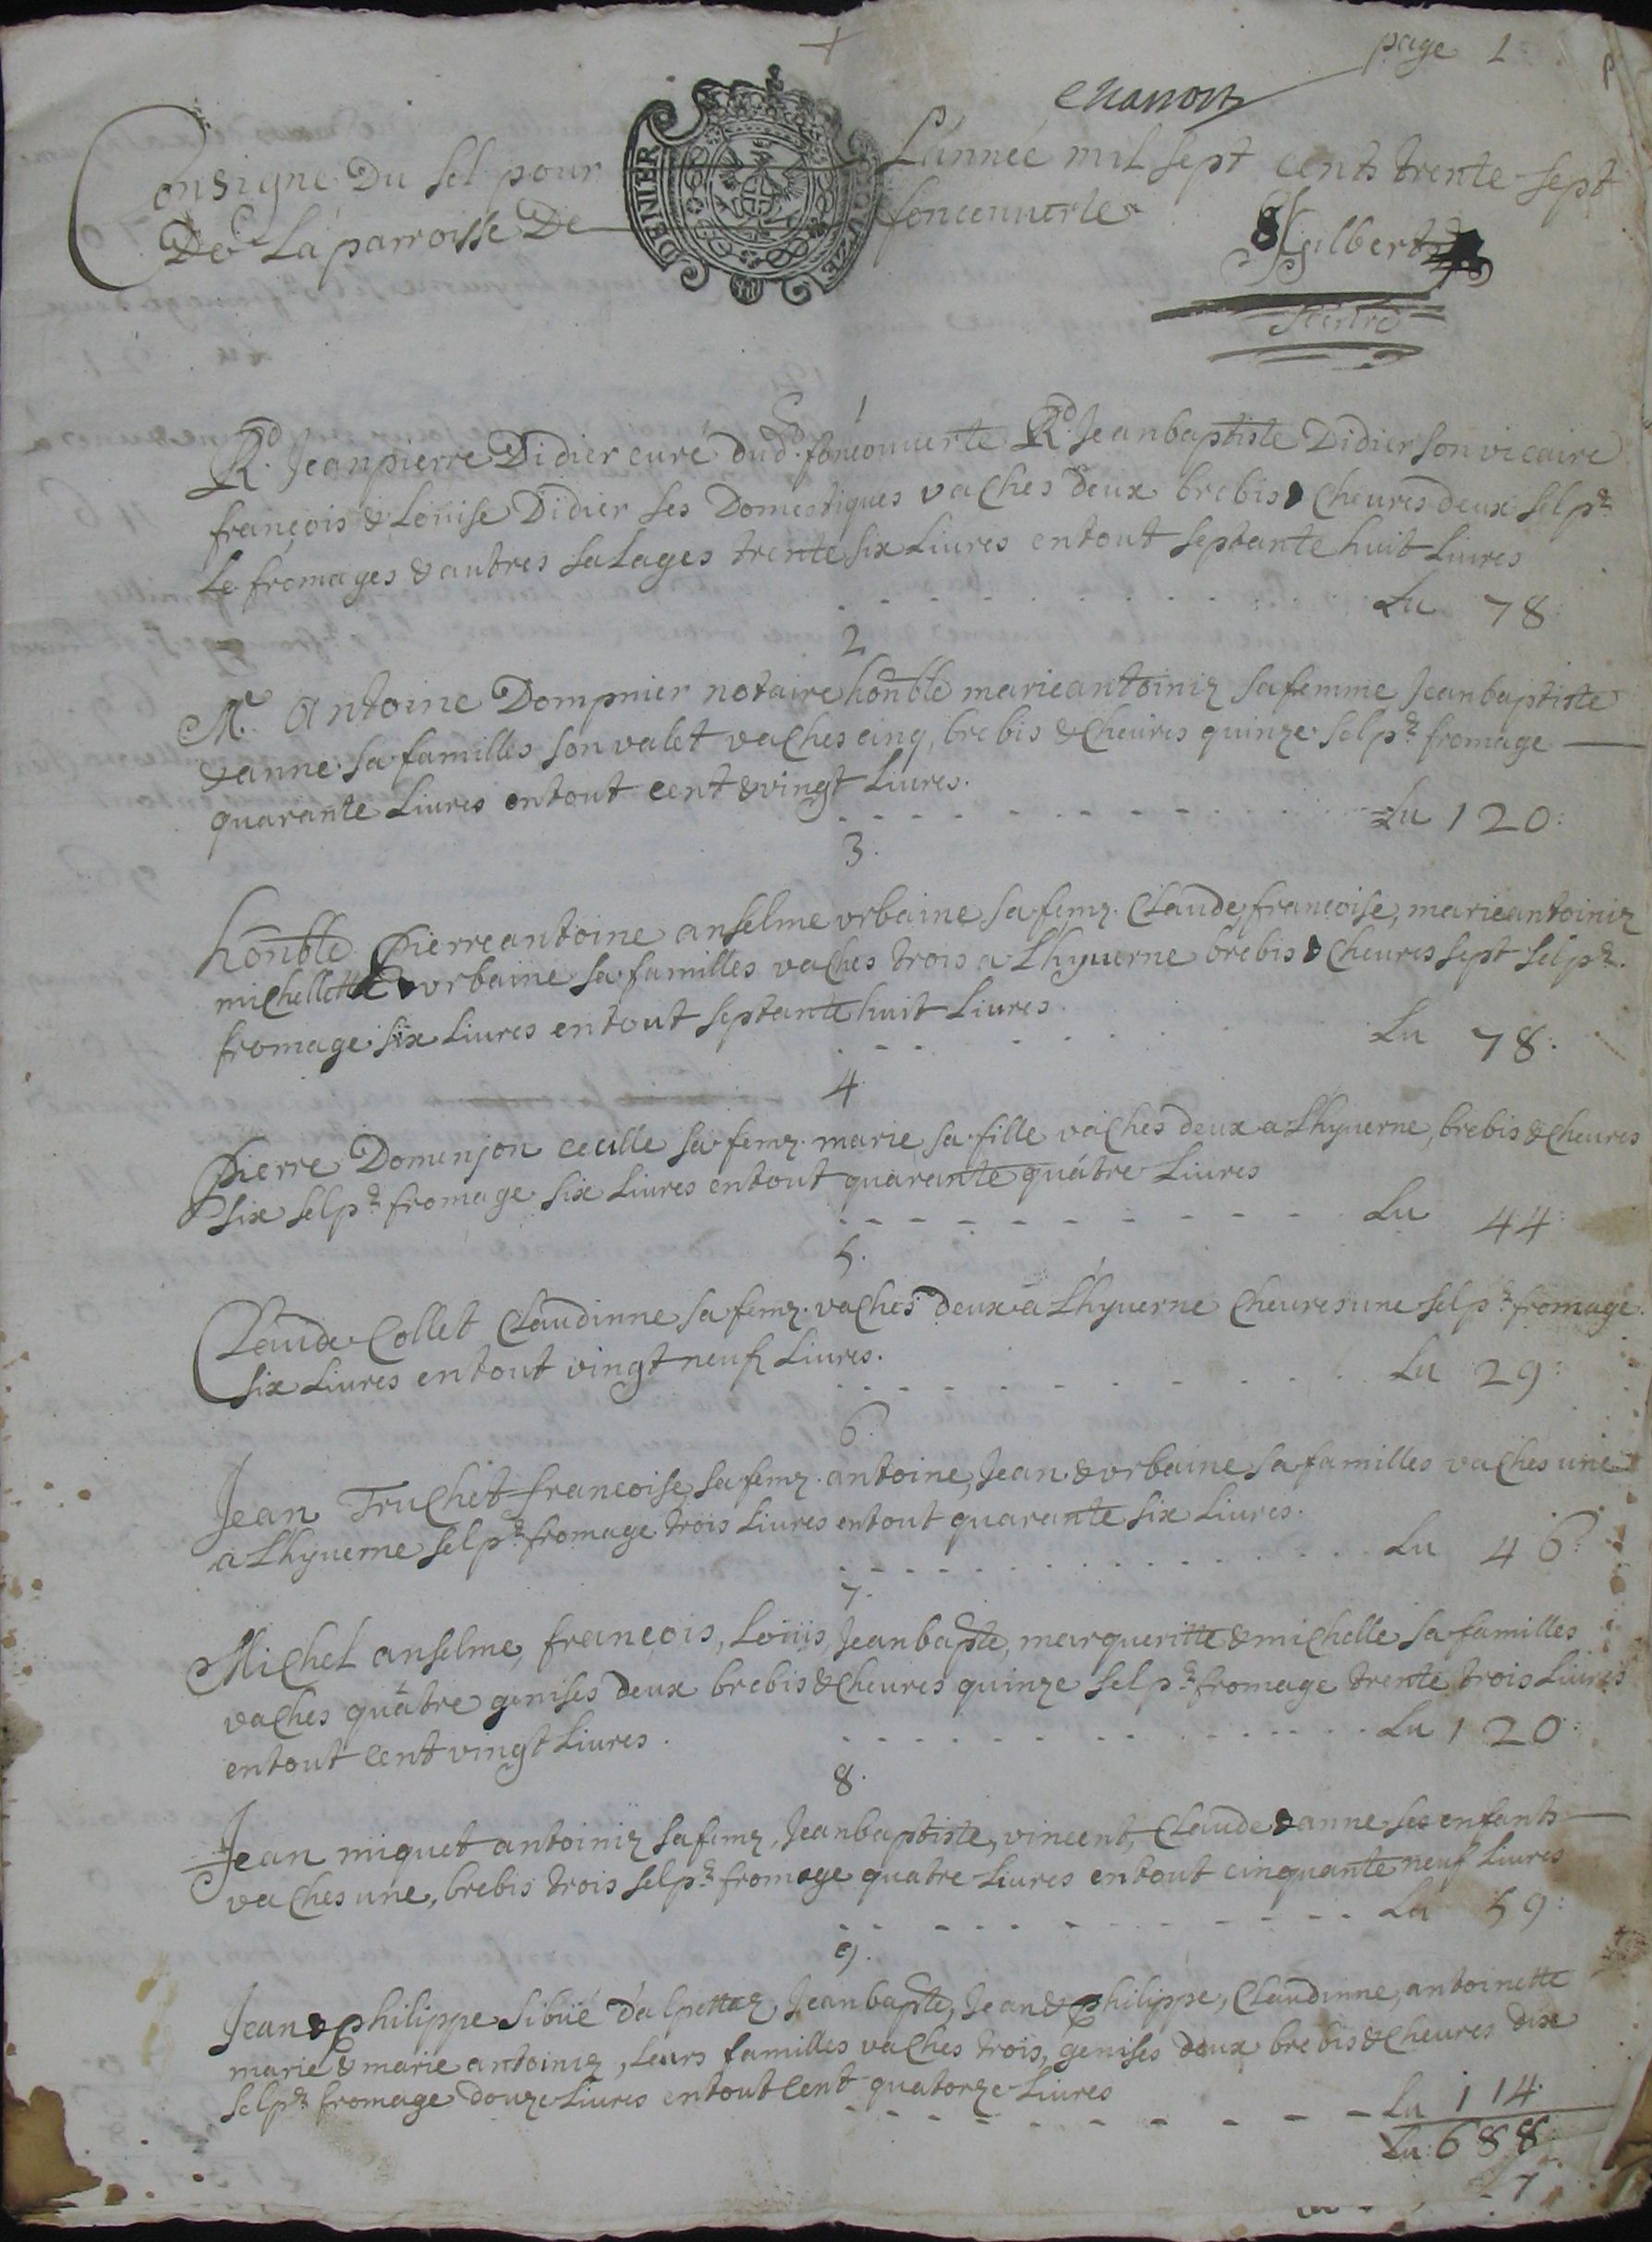 page 1
Consigne Du sel pour L'année mil sept cents trente sept
De La parroisse De foncouuerte
DENIER
DOUZE
Gilbert
1
Rd. Jeanpierre Didier curé dud. foncouuerte Rd. Jeanbaptiste Didier son vicaire
françois & Loüise Didier ses Domestiques vaches deux brebis & cheures deux sel pr
Le fromages & autres salages trente six Liures entout septante huit Liures
Lu 78:
2
Me. Antoine Dompnier notaire honble marieantoiniz sa femme Jeanbaptiste
& anne sa familles son valet vaches cinq, brebis & cheures quinze sel pr fromage
quarante Liures entout cent & vingt Liures.
Lu 120:
3.
honble Pierreantoine anselme vrbaine sa femz. Claude, françoise, marieantoiniz
michellette & vrbaine sa familles vaches trois a Lhyuerne brebis & cheures sept sel pr.
fromage six Liures entout septante huit Liures.
Lu 78:
4
Pierre Domenjon cecille sa femz. marie sa fille vaches deux a Lhyuerne, brebis & cheures
six sel pr fromage six Liures entout quarante quatre Liures
Lu 44:
5.
Claude Collet Claudinne sa femz. vaches deux a Lhyuerne cheures une sel pr fromage.
six Liures entout vingt neuf Liures.
Lu 29:
6.
Jean Truchet françoise sa femz. antoine, Jean & vrbaine sa familles vaches une
a Lhyuerne sel pr fromage trois Liures entout quarante six Liures.
Lu 46:
7.
Michel anselme, françois, Loüis, Jeanbapte, margueritte & michelle sa familles
vaches quatre genises deux brebis & cheures quinze sel pr fromage trente trois Liures
entout cent vingt Liures.
Lu 120:
8.
Jean miquet antoiniz sa femz, Jeanbaptiste, vincent, Claude & anne ses enfants
vaches une, brebis trois sel pr fromage quatre Liures entout cinquante neuf Liures
Lu 59:
9.
Jean & Philippe Sibüé d'alpettaz, Jeanbapte, Jean & Philippe, Claudinne, antoinette
marie & marie antoiniz, leurs familles vaches trois, genises deux brebis & cheures dix
sel pr fromage douze Liures entout cent quatorze Liures
Lu 114:
Lu: 688
7